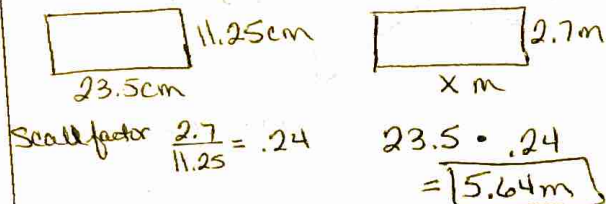 11.25cm 2.7m
23.5cm x m
Scall factor 2.7/11.25 = .24 23.5 • .24
= 5.64m